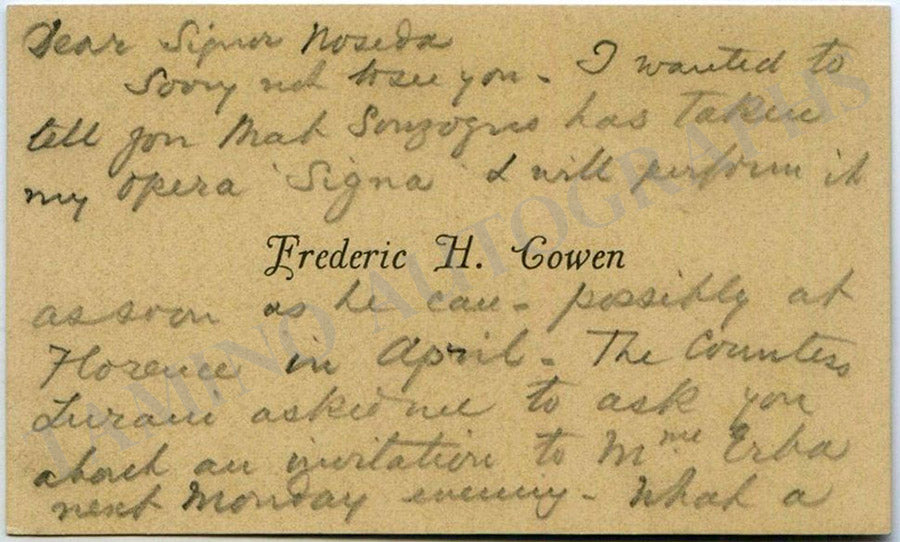 Dear Signor Noseda
Sorry not to see you - I wanted to
tell you that Sonzogno has taken
my opera 'Signa' & will perform it
Frederic H. Cowen
as soon as he can - possibly at
Florence in April - The Countess
Lurani asked me to ask you
about an invitation to Mme Erba
next Monday evening - What a
TAMINO AUTOGRAPHS